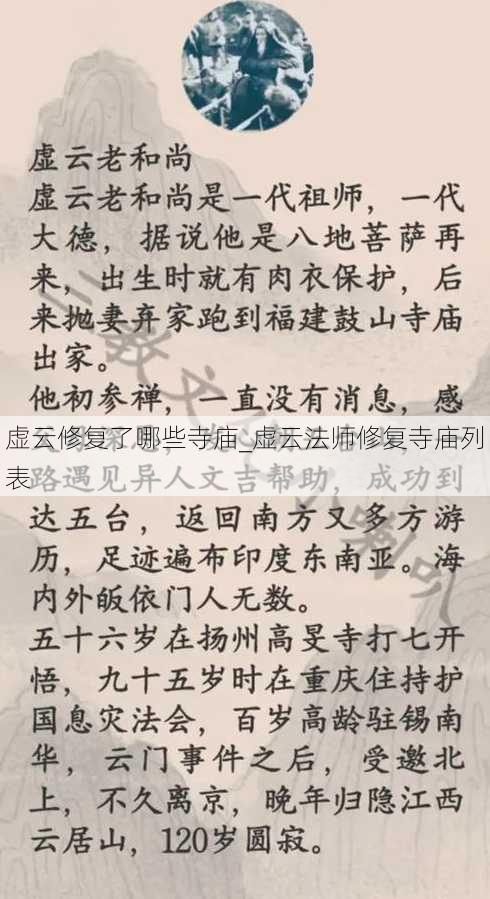 虚云老和尚
虚云老和尚是一代祖师，一代
大德，据说他是八地菩萨再
来，出生时就有肉衣保护，后
来抛妻弃家跑到福建鼓山寺庙
出家。
他初参禅，一直没有消息，感
虚云修复了哪些寺庙_虚云法师修复寺庙列
表
路遇见异人文吉帮助，成功到
达五台，返回南方又多方游
历，足迹遍布印度东南亚。海
内外皈依门人无数。
五十六岁在扬州高旻寺打七开
悟，九十五岁时在重庆住持护
国息灾法会，百岁高龄驻锡南
华，云门事件之后，受邀北
上，不久离京，晚年归隐江西
云居山，120岁圆寂。